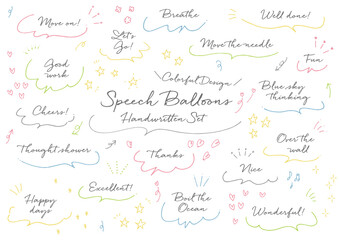 Move on!
Let's
Go!
Breathe
Well done!
Move the needle
Fun
Good
work
Colorful Design
Blue sky
thinking
Speech Balloons
Handwritten Set
Cheers!
Thought shower
Thanks
Over the
wall
Nice
Happy
days
Excellent!
Boil the
Ocean
Wonderful!